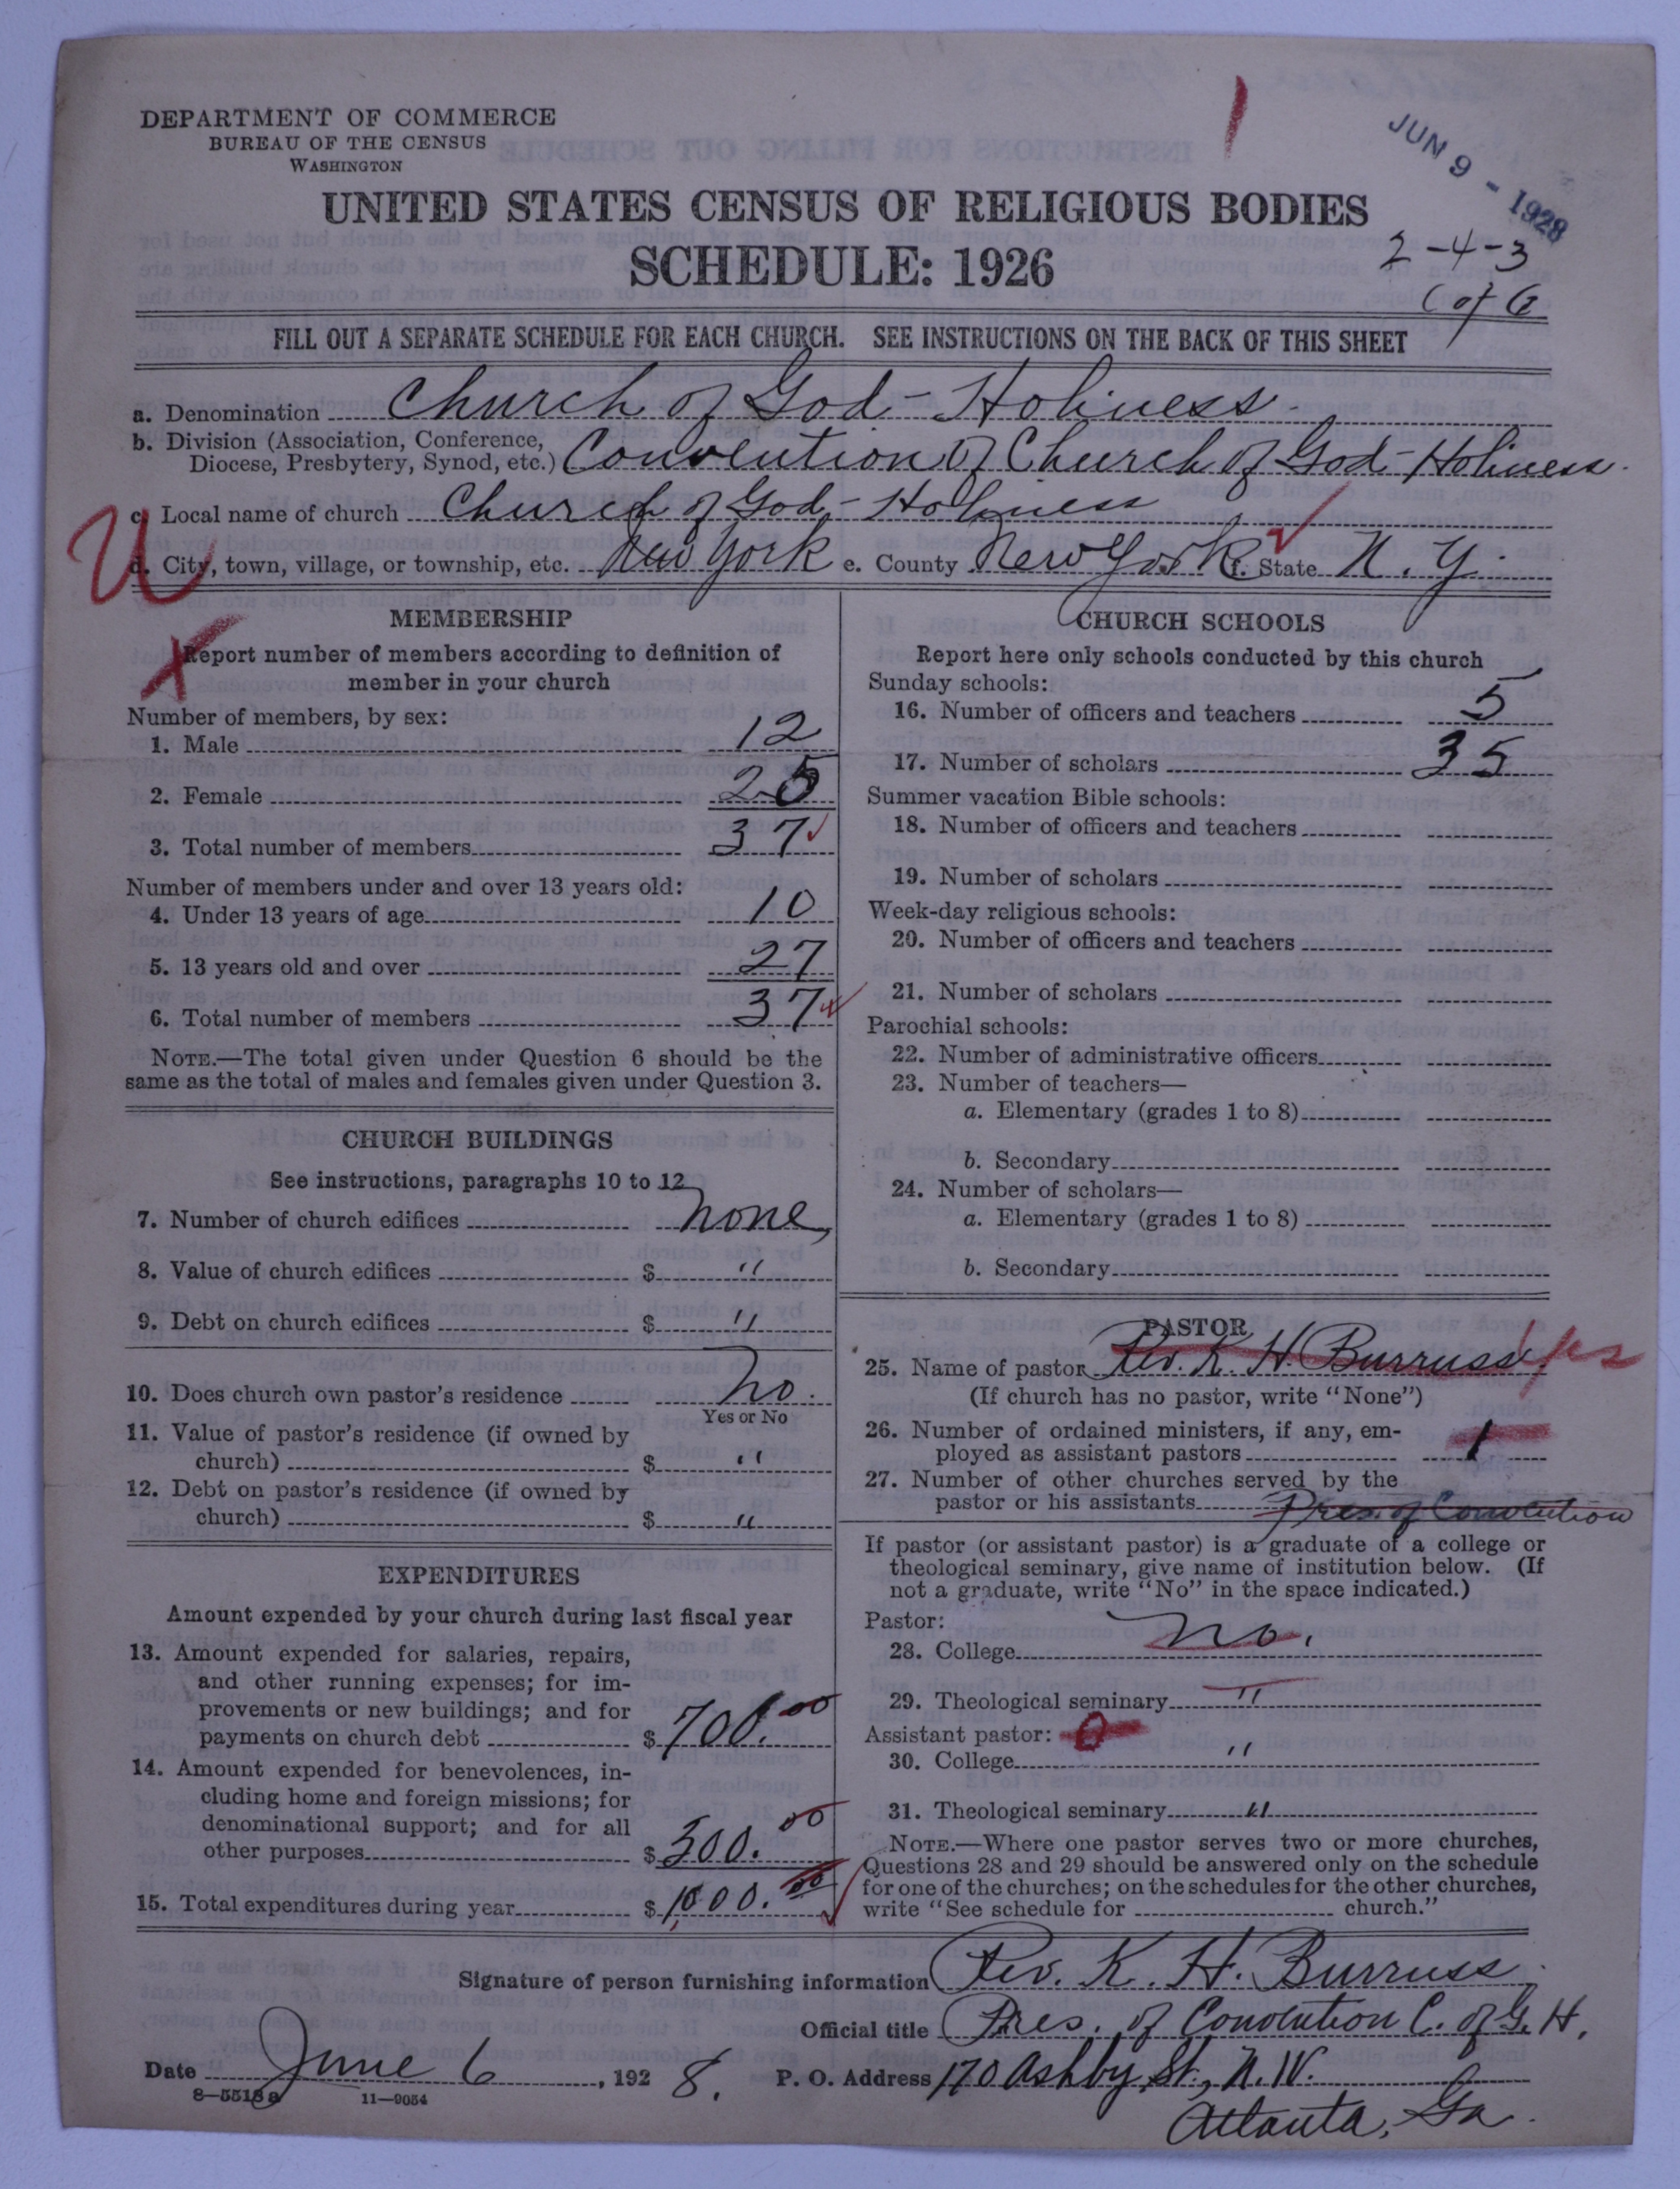 DEPARTMENT OF COMMERCE
BUREAU OF THE CENSUS
WASHINGTON
JUN 9 - 1928
UNITED STATES CENSUS OF RELIGIOUS BODIES
SCHEDULE: 1926
2-4-3
C of G
FILL OUT A SEPARATE SCHEDULE FOR EACH CHURCH. SEE INSTRUCTIONS ON THE BACK OF THIS SHEET
a. Denomination Church of God - Holiness
b. Division (Association, Conference,
Diocese, Presbytery, Synod, etc.) Convention of Church of God - Holiness.
c. Local name of church Church of God - Holiness
d. City, town, village, or township, etc. New York e. County New York f. State N. Y.
U
X
MEMBERSHIP
Report number of members according to definition of
member in your church
Number of members, by sex:
1. Male 12
2. Female 25
3. Total number of members 37
Number of members under and over 13 years old:
4. Under 13 years of age 10
5. 13 years old and over 27
6. Total number of members 37
NOTE.—The total given under Question 6 should be the
same as the total of males and females given under Question 3.
CHURCH BUILDINGS
See instructions, paragraphs 10 to 12
7. Number of church edifices none
8. Value of church edifices $ "
9. Debt on church edifices $ "
10. Does church own pastor's residence No.
Yes or No
11. Value of pastor's residence (if owned by
church) $ "
12. Debt on pastor's residence (if owned by
church) $ "
EXPENDITURES
Amount expended by your church during last fiscal year
13. Amount expended for salaries, repairs,
and other running expenses; for im-
provements or new buildings; and for
payments on church debt $ 700.00
14. Amount expended for benevolences, in-
cluding home and foreign missions; for
denominational support; and for all
other purposes $ 300.00
15. Total expenditures during year $ 1000.00
CHURCH SCHOOLS
Report here only schools conducted by this church
Sunday schools:
16. Number of officers and teachers 5
17. Number of scholars 35
Summer vacation Bible schools:
18. Number of officers and teachers
19. Number of scholars
Week-day religious schools:
20. Number of officers and teachers
21. Number of scholars
Parochial schools:
22. Number of administrative officers
23. Number of teachers—
a. Elementary (grades 1 to 8)
b. Secondary
24. Number of scholars—
a. Elementary (grades 1 to 8)
b. Secondary
PASTOR
25. Name of pastor Rev. K. H. Burruss. yes
(If church has no pastor, write "None")
26. Number of ordained ministers, if any, em-
ployed as assistant pastors 1
27. Number of other churches served by the
pastor or his assistants Pres. of Convention
If pastor (or assistant pastor) is a graduate of a college or
theological seminary, give name of institution below. (If
not a graduate, write "No" in the space indicated.)
Pastor:
28. College No.
29. Theological seminary "
Assistant pastor: 0
30. College "
31. Theological seminary "
NOTE.—Where one pastor serves two or more churches,
Questions 28 and 29 should be answered only on the schedule
for one of the churches; on the schedules for the other churches,
write "See schedule for church."
Signature of person furnishing information Rev. K. H. Burruss
Official title Pres. of Convention C. of G. H.
Date June 6, 1928. P. O. Address 170 Ashby St., N. W.
8-5518a 11-9054
Atlanta, Ga.